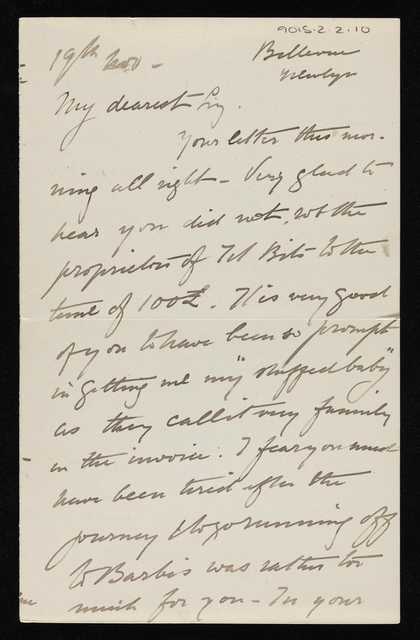 9015-2-2-10
19th Nov -
Bellevue
Newlyn
My dearest
Your letter this mor-
ning all right - Very glad to
hear you did not rob the
proprietors of Tit Bits to the
tune of 100£. It is very good
of you to have been so prompt
in getting me my "stuffed baby"
as they call it very funnily
in the invoice. I fear you must
have been tired after the
journey & to go running off
to Barbis was rather too
much for you - In your